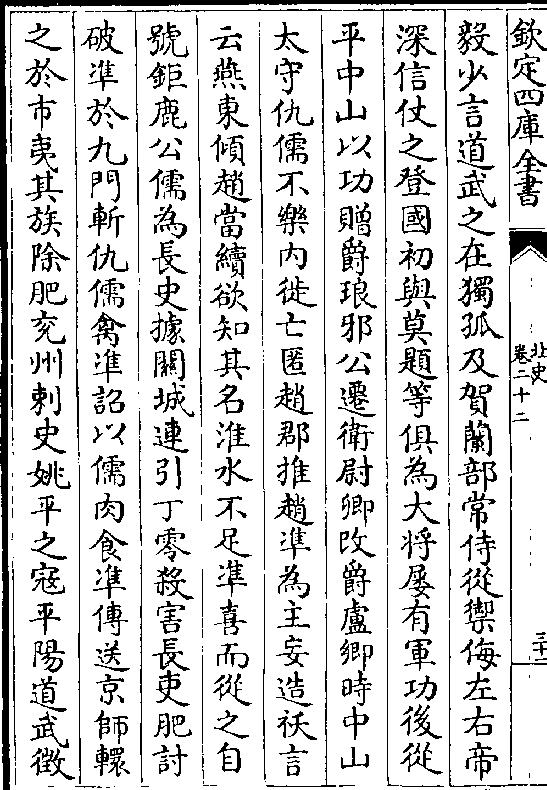 欽定四庫全書
北史
卷二十二
三十二
毅少言道武之在獨孤及賀蘭部常侍從禦侮左右帝
深信仗之登國初與莫題等俱為大将屡有軍功後從
平中山以功贈爵琅邪公遷衛尉卿改爵盧鄉時中山
太守仇儒不樂内徙亡匿趙郡推趙準為主妄造祅言
云燕東傾趙當續欲知其名淮水不足準喜而從之自
號鉅鹿公儒為長史據關城連引丁零殺害長吏肥討
破準於九門斬仇儒禽準詔以儒肉食準傳送京師轘
之於市夷其族除肥兖州刺史姚平之寇平陽道武徴